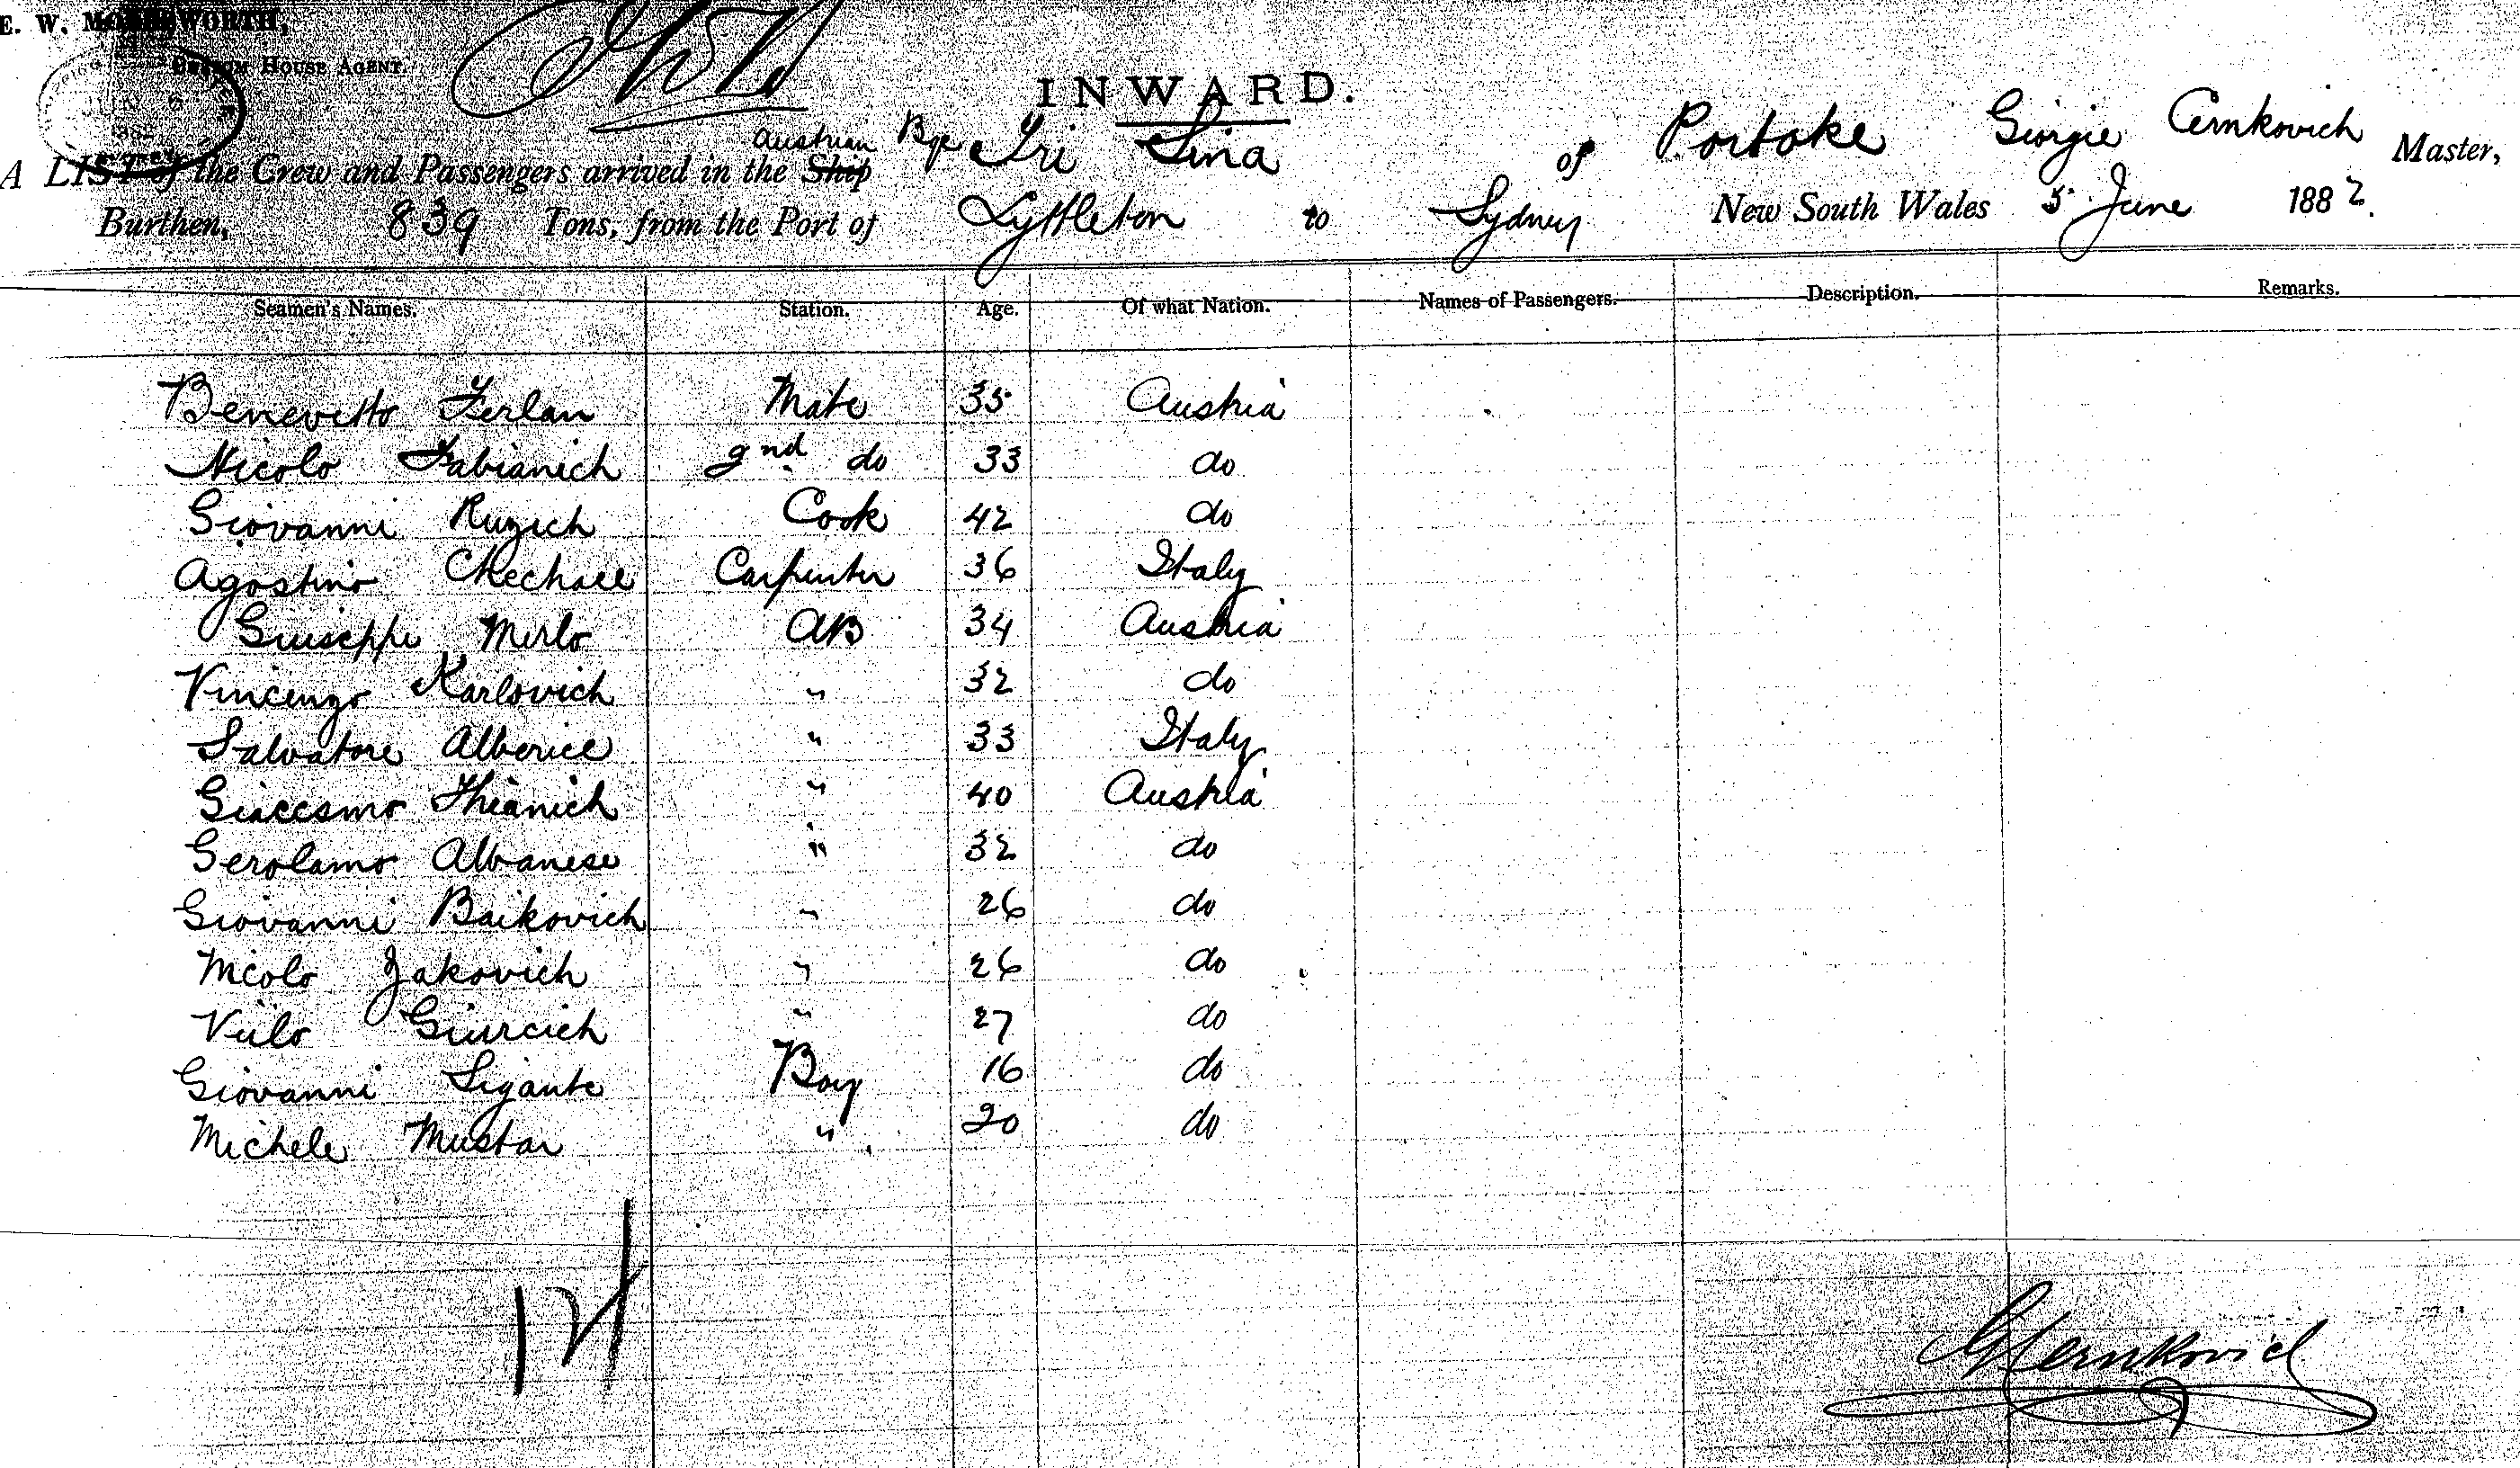 E. W. MOLESWORTH,
CUSTOM HOUSE AGENT.
INWARD.
A LIST of the Crew and Passengers arrived in the Ship Austrian Bqe Tri Sina of Portoke Giorgie Cernkovich Master,
Burthen, 839 Tons, from the Port of Lyttleton to Sydney New South Wales 5 June 1882.
Seamen's Names. Station. Age. Of what Nation. Names of Passengers. Description. Remarks.
Benevetto Ferlan Mate 35 Austria
Nicolo Fabianich 2nd do 33 do
Giovanni Ruzich Cook 42 do
Agostino Carpenter 36 Italy
Giuseppe Merlo AB 34 Austria
Vincenzo Karlovich " 32 do
Salvatore Alberice " 33 Italy
Giaccomo Thianich " 40 Austria
Gerolamo Albanese " 32 do
Giovanni Baikovich " 26 do
Nicolo Zakovich " 26 do
Giurcich " 27 do
Giovanni Sigante Boy 16 do
Michele Mustar " 20 do
14
GCernkovich